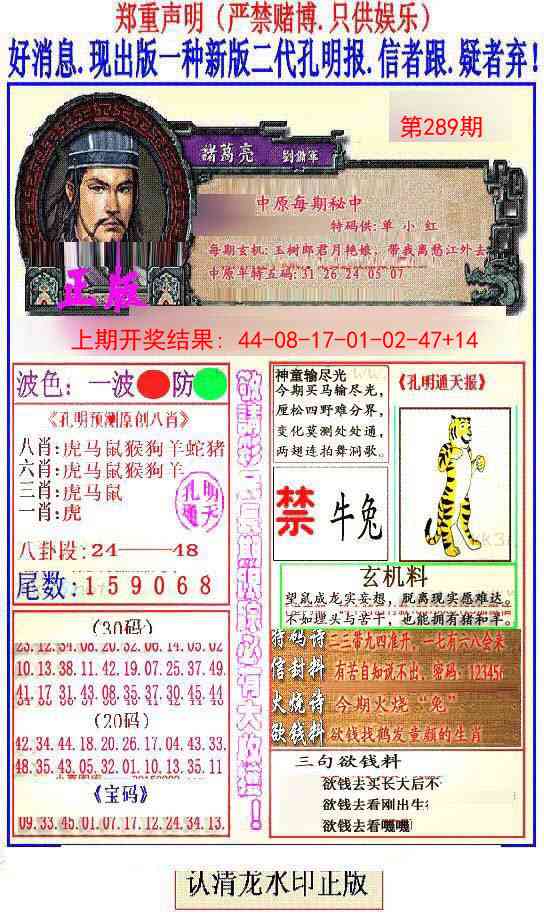 郑重声明（严禁赌博.只供娱乐）
好消息.现出版一种新版二代孔明报.信者跟.疑者弃！
第289期
諸葛亮
劉備軍
中原每期秘中
特码供:单 小 红
每期玄机:玉树郎君月艳娘，带我离愁江外去
中原平特五码:31 26 24 05 07
正版
上期开奖结果：44-08-17-01-02-47+14
波色：一波 防
《孔明预测原创八肖》
八肖:虎马鼠猴狗羊蛇猪
六肖:虎马鼠猴狗羊
三肖:虎马鼠
一肖:虎
孔明
通天
八卦段:24——48
尾数:159068
(30码)
23.12.34.08.20.32.06.14.05.02
10.13.38.11.42.19.07.25.37.49.
41.17.31.43.08.35.37.30.45.44
(20码)
42.34.44.18.20.26.17.04.43.33.
48.35.43.05.32.01.10.13.35.11
《宝码》
09.33.45.01.07.17.12.24.34.13.
神童输尽光
今期买马输尽光，
厘松四野难分界，
变化莫测处处通，
两翅连拍舞洞歌。
《孔明通天报》
禁
牛兔
玄机料
望鼠成龙实妄想，脱离现实愿难达。
不如埋头与苦干，也能拥有猪和羊。
特码诗 二三带九四准开，一七有六八会来
信封料 有苦自知说不出，密码：123456
火烧诗 今期火烧“兔”
欲钱料 欲钱找鹤发童颜的生肖
三句欲钱料
欲钱去买长大后不
欲钱去看刚出生
欲钱去看嘿嘿
认清龙水印正版